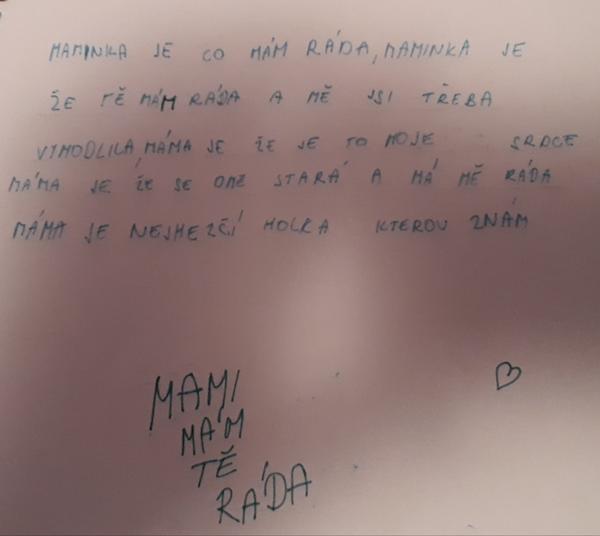 MAMINKA JE CO MÁM RÁDA, MAMINKA JE
ŽE TĚ MÁM RÁDA A MĚ JSI TŘEBA
VIMODLILA, MÁMA JE ŽE JE TO MOJE SRDCE
MÁMA JE, ŽE SE OMĚ STARÁ A MÁ MĚ RÁDA
MÁMA JE NEJHEZČÍ HOLKA KTEROU ZNÁM
MAMI
MÁM
TĚ
RÁDA